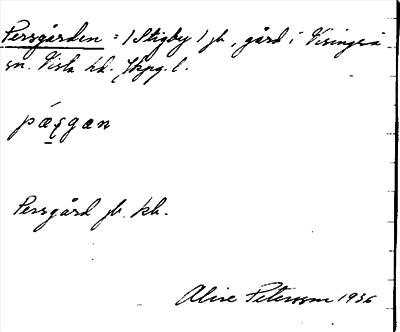 Persgården = 1 Stigby 1 jb, gård i Visingsö
sn. Vista hd. Jkpg. l.
pǽ̠ʂgan
Persgård jb. kb.
Alice Peterson 1936